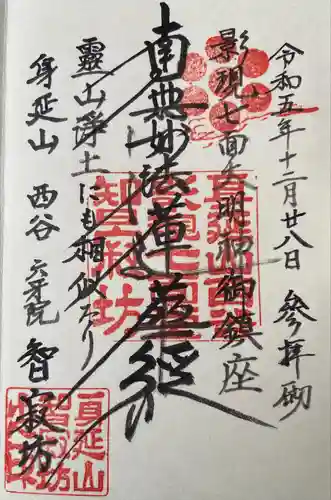 令和五年十二月廿八日 參拝砌
影現七面大明神御鎮座
南無妙法蓮華経
靈山浄土にも相似たり
身延山 西谷 智寂坊
身延山
智寂坊